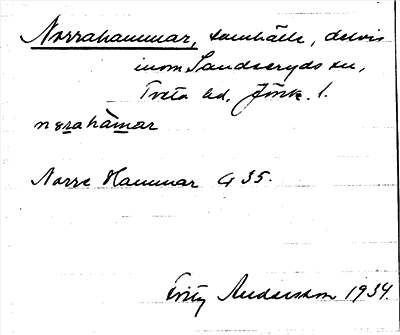 Norrahammar, samhälle, delvis
inom Sandseryds sn,
Tveta hd, Jönk. l.
norahamar
Norre Hammar G 35.
Fritz Andersson 1934.